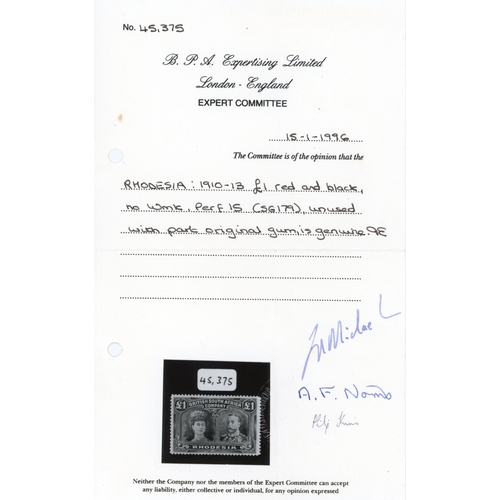 No. 45,375
B. P. A. Expertising Limited
London - England
EXPERT COMMITTEE
15-1-1996
The Committee is of the opinion that the
RHODESIA: 1910-13 £1 red and black,
no wmk, Perf 15 (SG179), unused
with part original gum, is genuine.
45,375
£1 BRITISH SOUTH AFRICA £1
COMPANY
RHODESIA
Neither the Company nor the members of the Expert Committee can accept
any liability, either collective or individual, for any opinion expressed